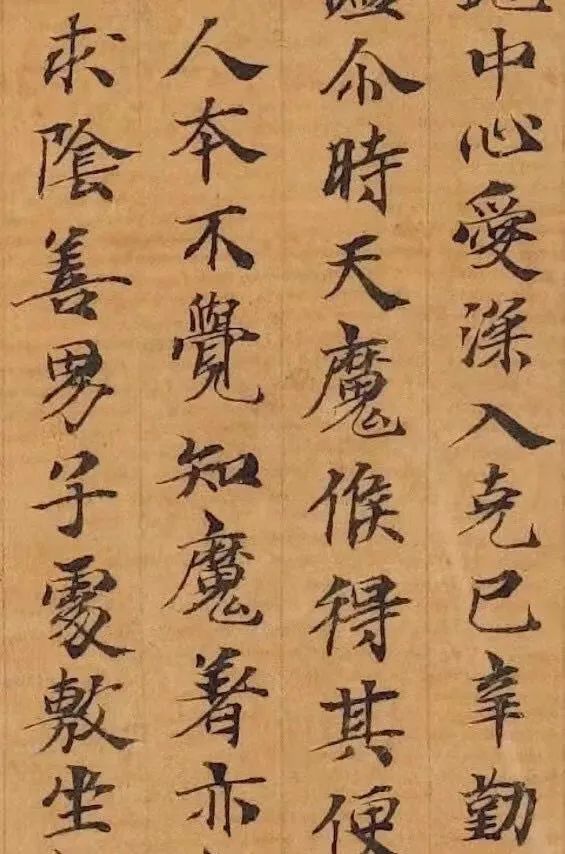 中心愛深入克己辛勤
尒時天魔候得其便
人本不覺知魔著亦
求陰善男子處敷坐